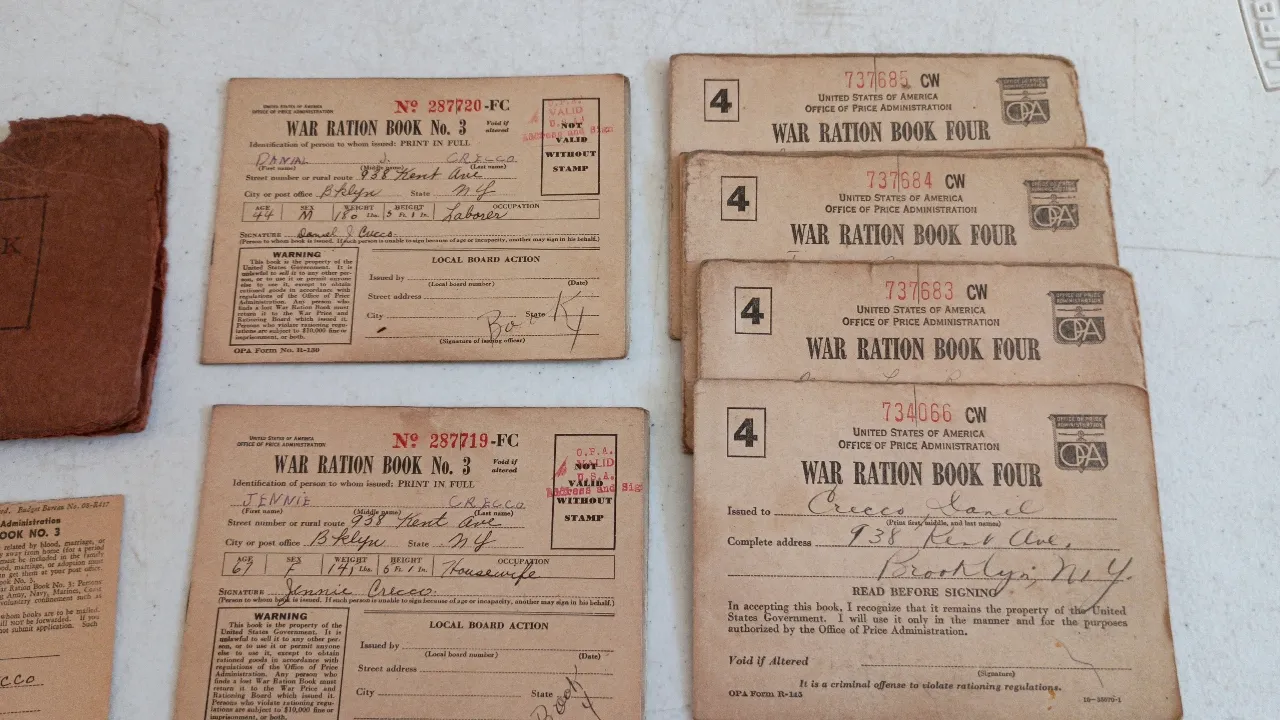 K
UNITED STATES OF AMERICA
OFFICE OF PRICE ADMINISTRATION
Nº 287720-FC
WAR RATION BOOK No. 3
Void if altered
Identification of person to whom issued: PRINT IN FULL
DANIAL J. CRECCO
(First name) (Middle name) (Last name)
Street number or rural route 938 Kent Ave
City or post office Bklyn State N.Y
AGE SEX WEIGHT HEIGHT OCCUPATION
44 M 180 Lbs. 5 Ft. 1 In. Laborer
SIGNATURE Daniel J Crecco
(Person to whom book is issued. If such person is unable to sign because of age or incapacity, another may sign in his behalf.)
O.P.A.
VALID
U.S.A.
Address and Sign
NOT
VALID
WITHOUT
STAMP
WARNING
This book is the property of the
United States Government. It is
unlawful to sell it to any other per-
son, or to use it or permit anyone
else to use it, except to obtain
rationed goods in accordance with
regulations of the Office of Price
Administration. Any person who
finds a lost War Ration Book must
return it to the War Price and
Rationing Board which issued it.
Persons who violate rationing regu-
lations are subject to $10,000 fine or
imprisonment, or both.
LOCAL BOARD ACTION
Issued by
(Local board number) (Date)
Street address
City State
(Signature of issuing officer)
OPA Form No. R-130
UNITED STATES OF AMERICA
OFFICE OF PRICE ADMINISTRATION
Nº 287719-FC
WAR RATION BOOK No. 3
Void if altered
Identification of person to whom issued: PRINT IN FULL
JENNIE CRECCO
(First name) (Middle name) (Last name)
Street number or rural route 938 Kent Ave
City or post office Bklyn State N.Y
AGE SEX WEIGHT HEIGHT OCCUPATION
67 F 141 Lbs. 5 Ft. 1 In. Housewife
SIGNATURE Jennie Crecco.
(Person to whom book is issued. If such person is unable to sign because of age or incapacity, another may sign in his behalf.)
O.P.A.
VALID
U.S.A.
Address and Sig
NOT
VALID
WITHOUT
STAMP
WARNING
This book is the property of the
United States Government. It is
unlawful to sell it to any other per-
son, or to use it or permit anyone
else to use it, except to obtain
rationed goods in accordance with
regulations of the Office of Price
Administration. Any person who
finds a lost War Ration Book must
return it to the War Price and
Rationing Board which issued it.
Persons who violate rationing regu-
lations are subject to $10,000 fine or
imprisonment, or both.
LOCAL BOARD ACTION
Issued by
(Local board number) (Date)
Street address
City State
Budget Bureau No. 08-R427
Administration
OOK NO. 3
related by blood, marriage, or
away from home (for a period
must be included in the family
d, marriage, or adoption must
get them at your post office.
ok No. 5.
Army, Navy, Marines, Coast
voluntary confinement such as
whom books are to be mailed.
ill NOT be forwarded. If you
not submit application. Such
cco
4
737685 CW
UNITED STATES OF AMERICA
OFFICE OF PRICE ADMINISTRATION
WAR RATION BOOK FOUR
OFFICE OF PRICE
ADMINISTRATION
OPA
4
737684 CW
UNITED STATES OF AMERICA
OFFICE OF PRICE ADMINISTRATION
WAR RATION BOOK FOUR
OFFICE OF PRICE
ADMINISTRATION
OPA
4
737683 CW
UNITED STATES OF AMERICA
OFFICE OF PRICE ADMINISTRATION
WAR RATION BOOK FOUR
OFFICE OF PRICE
ADMINISTRATION
OPA
4
734066 CW
UNITED STATES OF AMERICA
OFFICE OF PRICE ADMINISTRATION
WAR RATION BOOK FOUR
OFFICE OF PRICE
ADMINISTRATION
OPA
Issued to Crecco Danel
(Print first, middle, and last names)
Complete address 938 Kent Ave.
Brooklyn, N.Y.
READ BEFORE SIGNING
In accepting this book, I recognize that it remains the property of the United
States Government. I will use it only in the manner and for the purposes
authorized by the Office of Price Administration.
Void if Altered
(Signature)
It is a criminal offense to violate rationing regulations.
OPA Form R-145
LIFE